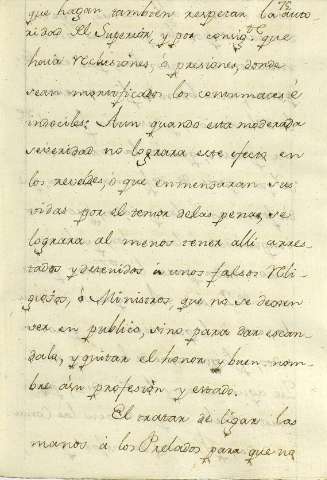 que hagan tambien respetar la auto-
ridad del Superior, y por consig.te que
haia reclusiones, ó prisiones, donde
sean mortificados los contumaces é
indociles. Aun quando esta moderada
severidad no lograra este efecto en
los reveldes, o que enmendaran sus
vidas por el temor delas penas, se
lograra al menos tener alli arres-
tados y detenidos á unos falsos Reli-
giosos, ó Ministros, que no se dexen
ver en publico, sino para dar escan-
dalo, y quitar el honor y buen nom-
bre asu profesion y estado.
El tratar de ligar las
manos á los Prelados para que no